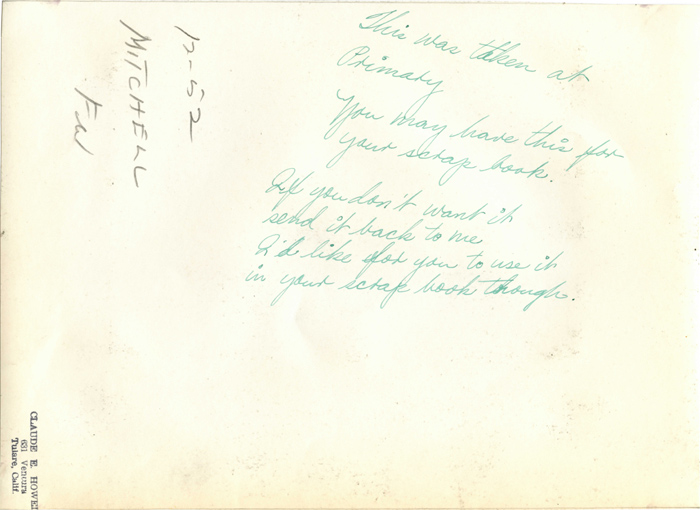 This was taken at
Primary
You may have this for
your scrap book.
If you don't want it
send it back to me
I'd like for you to use it
in your scrap book though.
12-52
MITCHELL
CLAUDE E. HOWE
631 Ventura
Tulare, Calif.